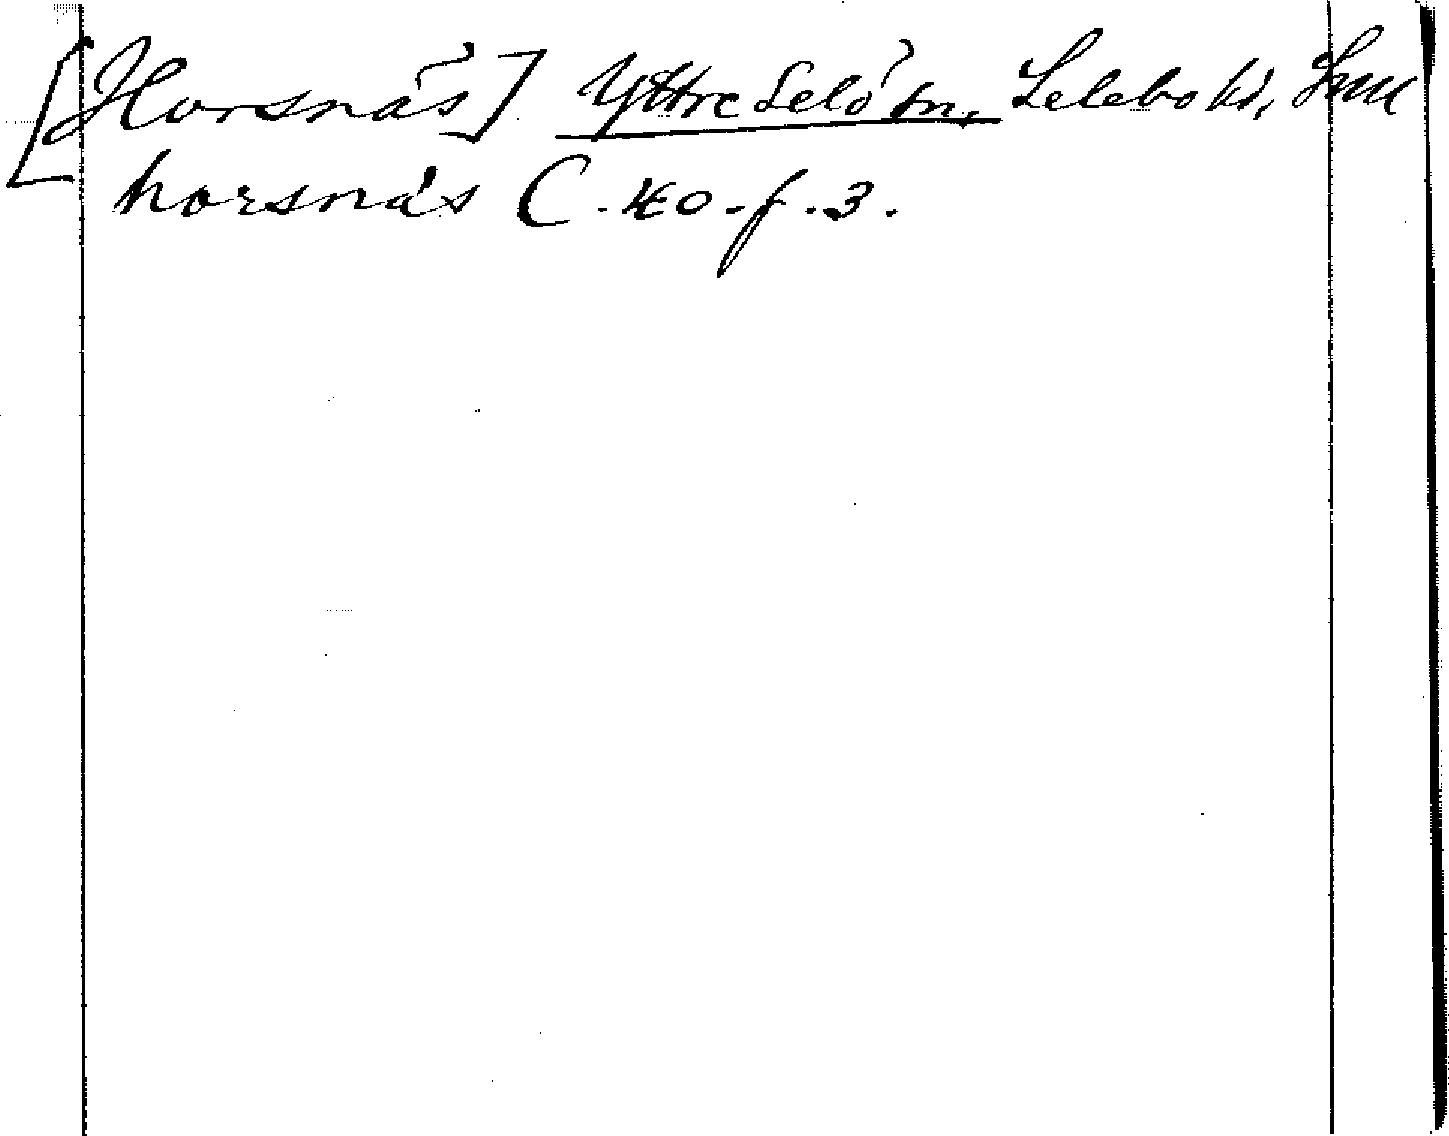 [Horsnäs] Yttre Selö sn, Selebo hd, Srm
horsnäs C. 40. f. 3.